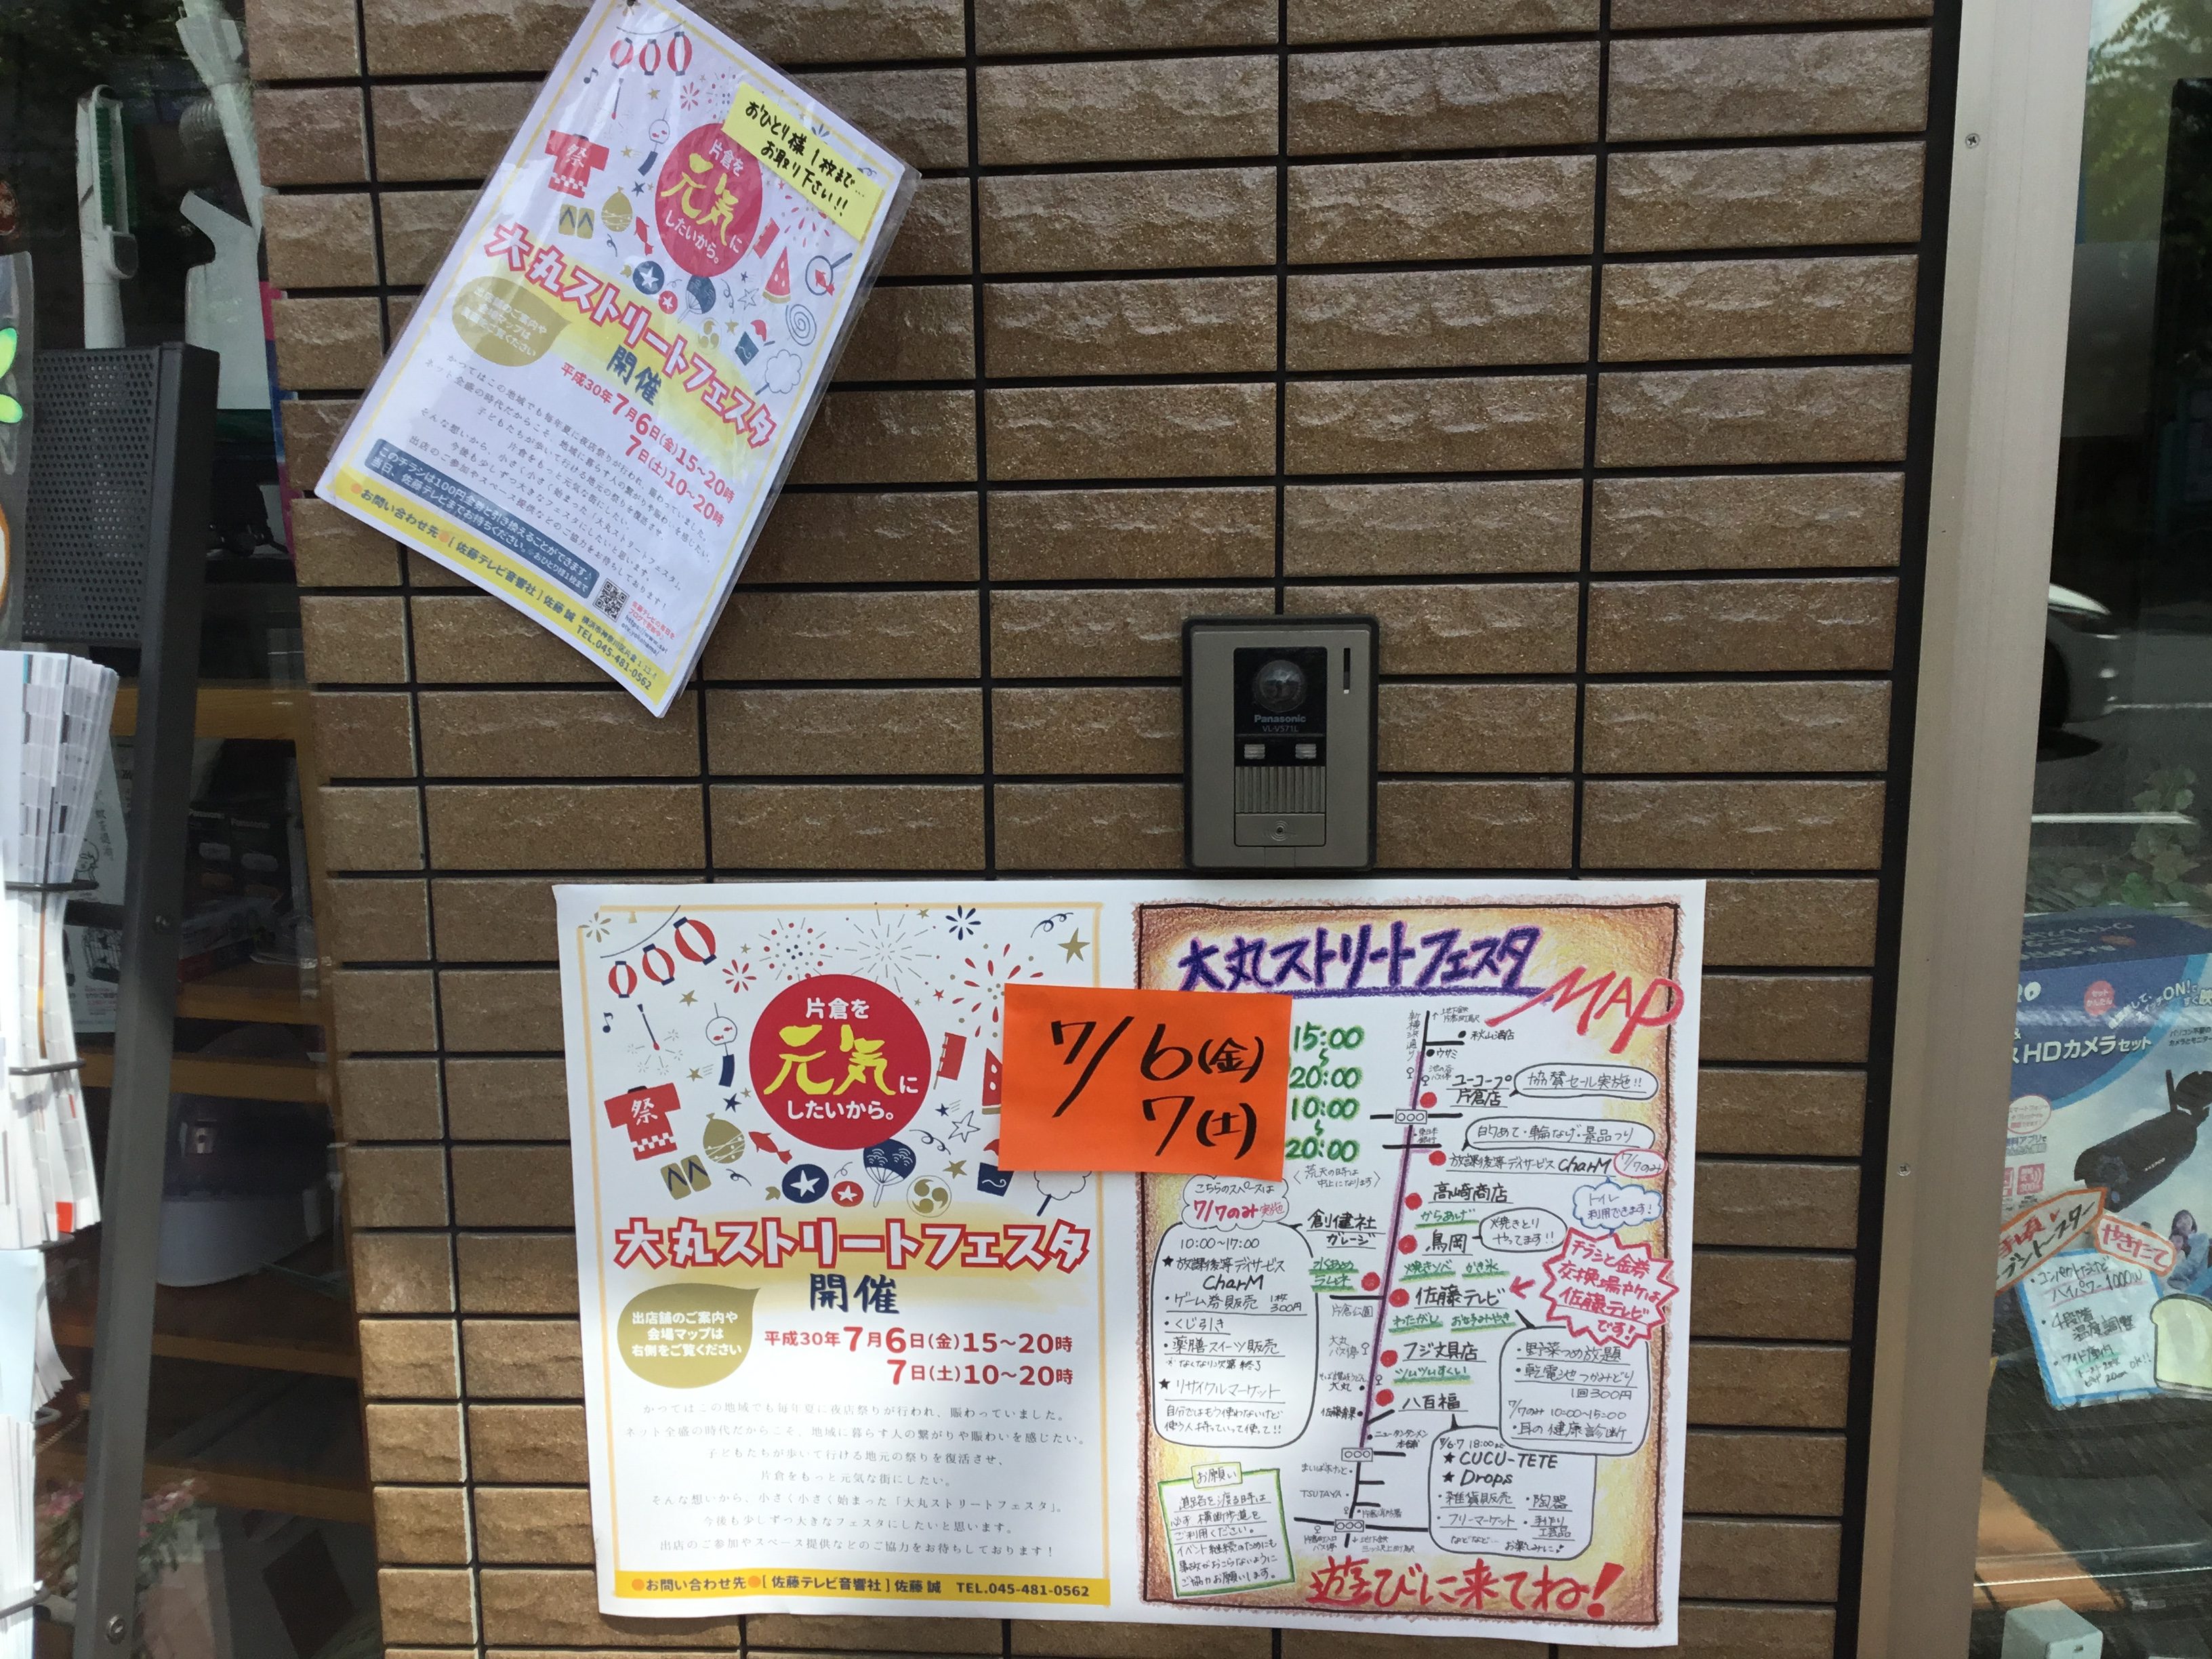 おひとり様1枚まで…
お取り下さい!!
祭
片倉を
元気に
したいから。
大丸ストリートフェスタ
開催
平成30年7月6日(金)15〜20時
7日(土)10〜20時
かつてはこの地域でも毎年夏に夜店祭りが行われ、賑わっていました。
ネット全盛の時代だからこそ、地域に暮らす人の繋がりや賑わいを感じたい。
子どもたちが歩いて行ける地元の祭りを復活させ、
片倉をもっと元気な街にしたい。
そんな想いから、小さく小さく始まった「大丸ストリートフェスタ」。
今後も少しずつ大きなフェスタにしたいと思います。
出店のご参加やスペース提供などのご協力をお待ちしております!
このチラシは100円金券と引き換えることができます♪
当日、佐藤テレビまでお持ちください。※おひとり様1枚まで
お問い合わせ先 [佐藤テレビ音響社] 佐藤 誠
TEL.045-481-0562
Panasonic
VL-V571L
片倉を
元気に
したいから。
祭
大丸ストリートフェスタ
開催
出店舗のご案内や
会場マップは
右側をご覧ください
平成30年7月6日(金)15〜20時
7日(土)10〜20時
かつてはこの地域でも毎年夏に夜店祭りが行われ、賑わっていました。
ネット全盛の時代だからこそ、地域に暮らす人の繋がりや賑わいを感じたい。
子どもたちが歩いて行ける地元の祭りを復活させ、
片倉をもっと元気な街にしたい。
そんな想いから、小さく小さく始まった「大丸ストリートフェスタ」。
今後も少しずつ大きなフェスタにしたいと思います。
出店のご参加やスペース提供などのご協力をお待ちしております!
お問い合わせ先 [佐藤テレビ音響社] 佐藤 誠 TEL.045-481-0562
7/6(金)
7(土)
大丸ストリートフェスタ
MAP
15:00
〜
20:00
10:00
〜
20:00
〈荒天の時は
中止になります〉
新横浜通り
秋山酒店
ウサミ
ユーコープ
片倉店
協賛セール実施!!
的あて・輪なげ・景品つり
放課後等デイサービス CharM
7/7のみ
高崎商店
からあげ
トイレ
利用できます!
鳥岡
焼きとり
やってます!!
焼きソバ かき氷
佐藤テレビ
わたがし お好みやき
チラシと金券
交換場所は
佐藤テレビ
です!
フジ文具店
ツムツムすくい
八百福
こちらのスペースは
7/7のみ実施
創健社
ガレージ
水あめ
ラムネ
10:00〜17:00
★放課後等デイサービス
CharM
・ゲーム券販売 1枚300円
・くじ引き
・薬膳スイーツ販売
※なくなり次第終了
★リサイクルマーケット
自分ではもう使わないけど
使う人持っていって使って!!
片倉公園
大丸
バス停
大丸
佐藤青果
ニュータンタンメン
本舗
まいばすけっと
TSUTAYA
・野菜つめ放題
・乾電池つかみどり
1回300円
7/7のみ 10:00〜15:00
・耳の健康診断
7/6.7 18:00
★CUCU-TETE
★Drops
・雑貨販売 ・陶器
・フリーマーケット ・手作り
工芸品
などなど… お楽しみに♪
お願い
道路を渡る時は
必ず横断歩道を
ご利用ください。
イベント継続のためにも
事故がおこらないように
ご協力お願いします。
遊びに来てね!
HDカメラセット
やきたて
・コンパクトだけど
ハイパワー1000W
・4段階
温度調整